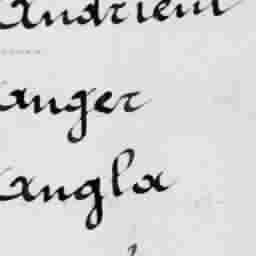 Andriem
anger
angla